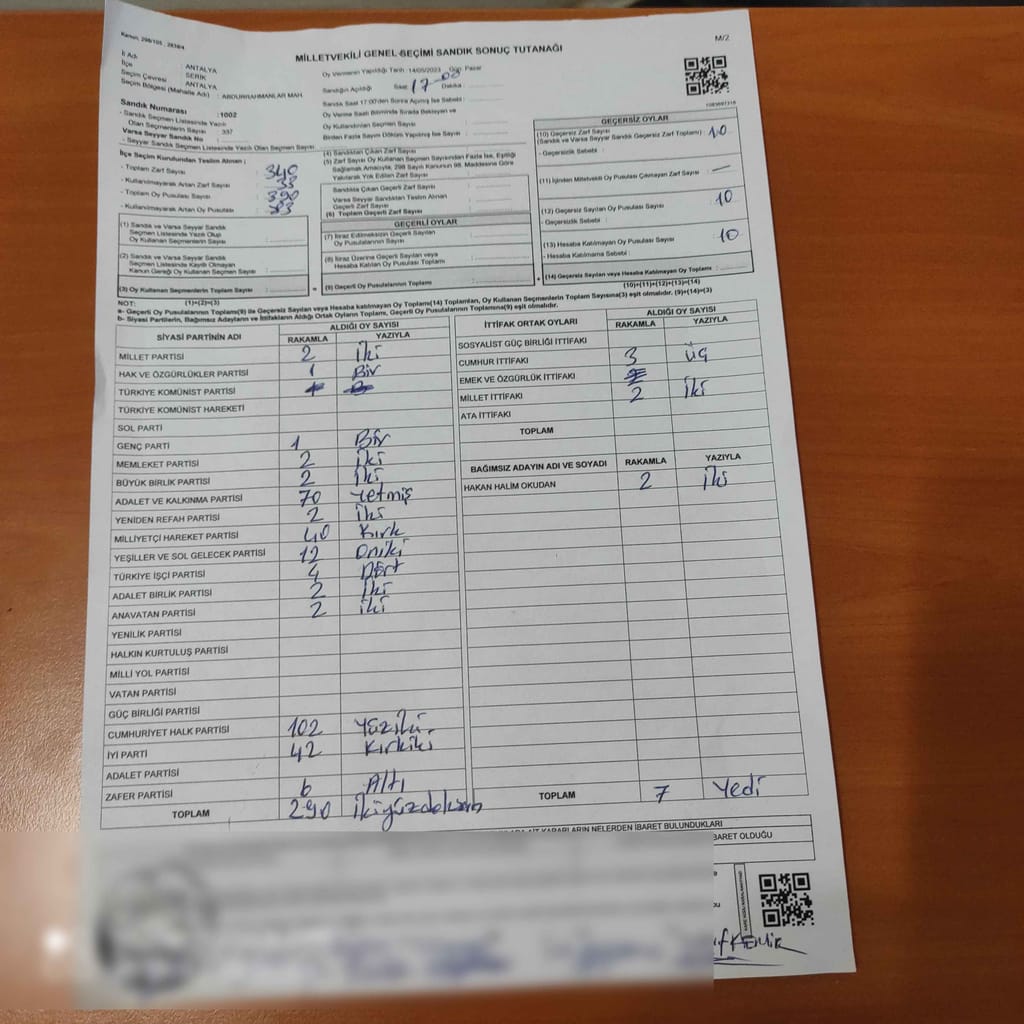 Kanun: 298/105 , 2839/4
M/2
MİLLETVEKİLİ GENEL SEÇİMİ SANDIK SONUÇ TUTANAĞI
İl Adı : ANTALYA
İlçe : SERİK
Seçim Çevresi : ANTALYA
Seçim Bölgesi (Mahalle Adı) : ABDURRAHMANLAR MAH.
Sandık Numarası : 1002
- Sandık Seçmen Listesinde Yazılı
Olan Seçmenlerin Sayısı : 337
Varsa Seyyar Sandık No
- Seyyar Sandık Seçmen Listesinde Yazılı Olan Seçmen Sayısı
Oy Vermenin Yapıldığı Tarih : 14/05/2023 Gün: Pazar
Sandığın Açıldığı Saat 17-00 Dakika :
Sandık Saat 17:00'den Sonra Açılmış İse Sebebi :
Oy Verme Saati Bitiminde Sırada Bekleyen ve
Oy Kullandırılan Seçmen Sayısı
Birden Fazla Sayım Döküm Yapılmış İse Sayısı
İlçe Seçim Kurulundan Teslim Alınan ;
- Toplam Zarf Sayısı : 340
- Kullanılmayarak Artan Zarf Sayısı :
- Toplam Oy Pusulası Sayısı :
- Kullanılmayarak Artan Oy Pusulası :
(1) Sandık ve Varsa Seyyar Sandık
Seçmen Listesinde Yazılı Olup
Oy Kullanan Seçmenlerin Sayısı :
(2) Sandık ve Varsa Seyyar Sandık
Seçmen Listesinde Kayıtlı Olmayan
Kanun Gereği Oy Kullanan Seçmen Sayısı :
(3) Oy Kullanan Seçmenlerin Toplam Sayısı :
(1)+(2)=(3)
(4) Sandıktan Çıkan Zarf Sayısı
(5) Zarf Sayısı Oy Kullanan Seçmen Sayısından Fazla İse, Eşitliği
Sağlamak Amacıyla, 298 Sayılı Kanunun 98. Maddesine Göre
Yakılarak Yok Edilen Zarf Sayısı
Sandıkta Çıkan Geçerli Zarf Sayısı
Varsa Seyyar Sandıktan Teslim Alınan
Geçerli Zarf Sayısı
(6) Toplam Geçerli Zarf Sayısı
GEÇERLİ OYLAR
(7) İtiraz Edilmeksizin Geçerli Sayılan
Oy Pusulalarının Sayısı
(8) İtiraz Üzerine Geçerli Sayılan veya
Hesaba Katılan Oy Pusulası Toplamı
(9) Geçerli Oy Pusulalarının Toplamı
GEÇERSİZ OYLAR
(10) Geçersiz Zarf Sayısı
(Sandık ve Varsa Seyyar Sandık Geçersiz Zarf Toplamı) : 10
- Geçersizlik Sebebi :
(11) İçinden Milletvekili Oy Pusulası Çıkmayan Zarf Sayısı : —
(12) Geçersiz Sayılan Oy Pusulası Sayısı : 10
- Geçersizlik Sebebi :
(13) Hesaba Katılmayan Oy Pusulası Sayısı : 10
- Hesaba Katılmama Sebebi :
(14) Geçersiz Sayılan veya Hesaba Katılmayan Oy Toplamı :
(10)+(11)+(12)+(13)=(14)
NOT:
a- Geçerli Oy Pusulalarının Toplamı(9) ile Geçersiz Sayılan veya Hesaba katılmayan Oy Toplamı(14) Toplamları, Oy Kullanan Seçmenlerin Toplam Sayısına(3) eşit olmalıdır. (9)+(14)=(3)
b- Siyasi Partilerin, Bağımsız Adayların ve İttifakların Aldığı Ortak Oyların Toplamı, Geçerli Oy Pusulalarının Toplamına(9) eşit olmalıdır.
SİYASİ PARTİNİN ADI ALDIĞI OY SAYISI
RAKAMLA YAZIYLA
MİLLET PARTİSİ 2 iki
HAK VE ÖZGÜRLÜKLER PARTİSİ 1 Bir
TÜRKİYE KOMÜNİST PARTİSİ
TÜRKİYE KOMÜNİST HAREKETİ
SOL PARTİ
GENÇ PARTİ 1 Bir
MEMLEKET PARTİSİ 2 iki
BÜYÜK BİRLİK PARTİSİ 2 iki
ADALET VE KALKINMA PARTİSİ 70 Yetmiş
YENİDEN REFAH PARTİSİ 2 iki
MİLLİYETÇİ HAREKET PARTİSİ 40 Kırk
YEŞİLLER VE SOL GELECEK PARTİSİ 12 Oniki
TÜRKİYE İŞÇİ PARTİSİ 4 Dört
ADALET BİRLİK PARTİSİ 2 iki
ANAVATAN PARTİSİ 2 iki
YENİLİK PARTİSİ
HALKIN KURTULUŞ PARTİSİ
MİLLİ YOL PARTİSİ
VATAN PARTİSİ
GÜÇ BİRLİĞİ PARTİSİ
CUMHURİYET HALK PARTİSİ 102 Yüziki
İYİ PARTİ 42 Kırkiki
ADALET PARTİSİ
ZAFER PARTİSİ 6 Altı
TOPLAM 290 ikiyüzdoksan
İTTİFAK ORTAK OYLARI ALDIĞI OY SAYISI
RAKAMLA YAZIYLA
SOSYALİST GÜÇ BİRLİĞİ İTTİFAKI
CUMHUR İTTİFAKI 3 üç
EMEK VE ÖZGÜRLÜK İTTİFAKI
MİLLET İTTİFAKI 2 iki
ATA İTTİFAKI
TOPLAM
BAĞIMSIZ ADAYIN ADI VE SOYADI RAKAMLA YAZIYLA
HAKAN HALİM OKUDAN 2 iki
TOPLAM 7 Yedi
KARARLARIN NELERDEN İBARET BULUNDUKLARI
BARET OLDUĞU